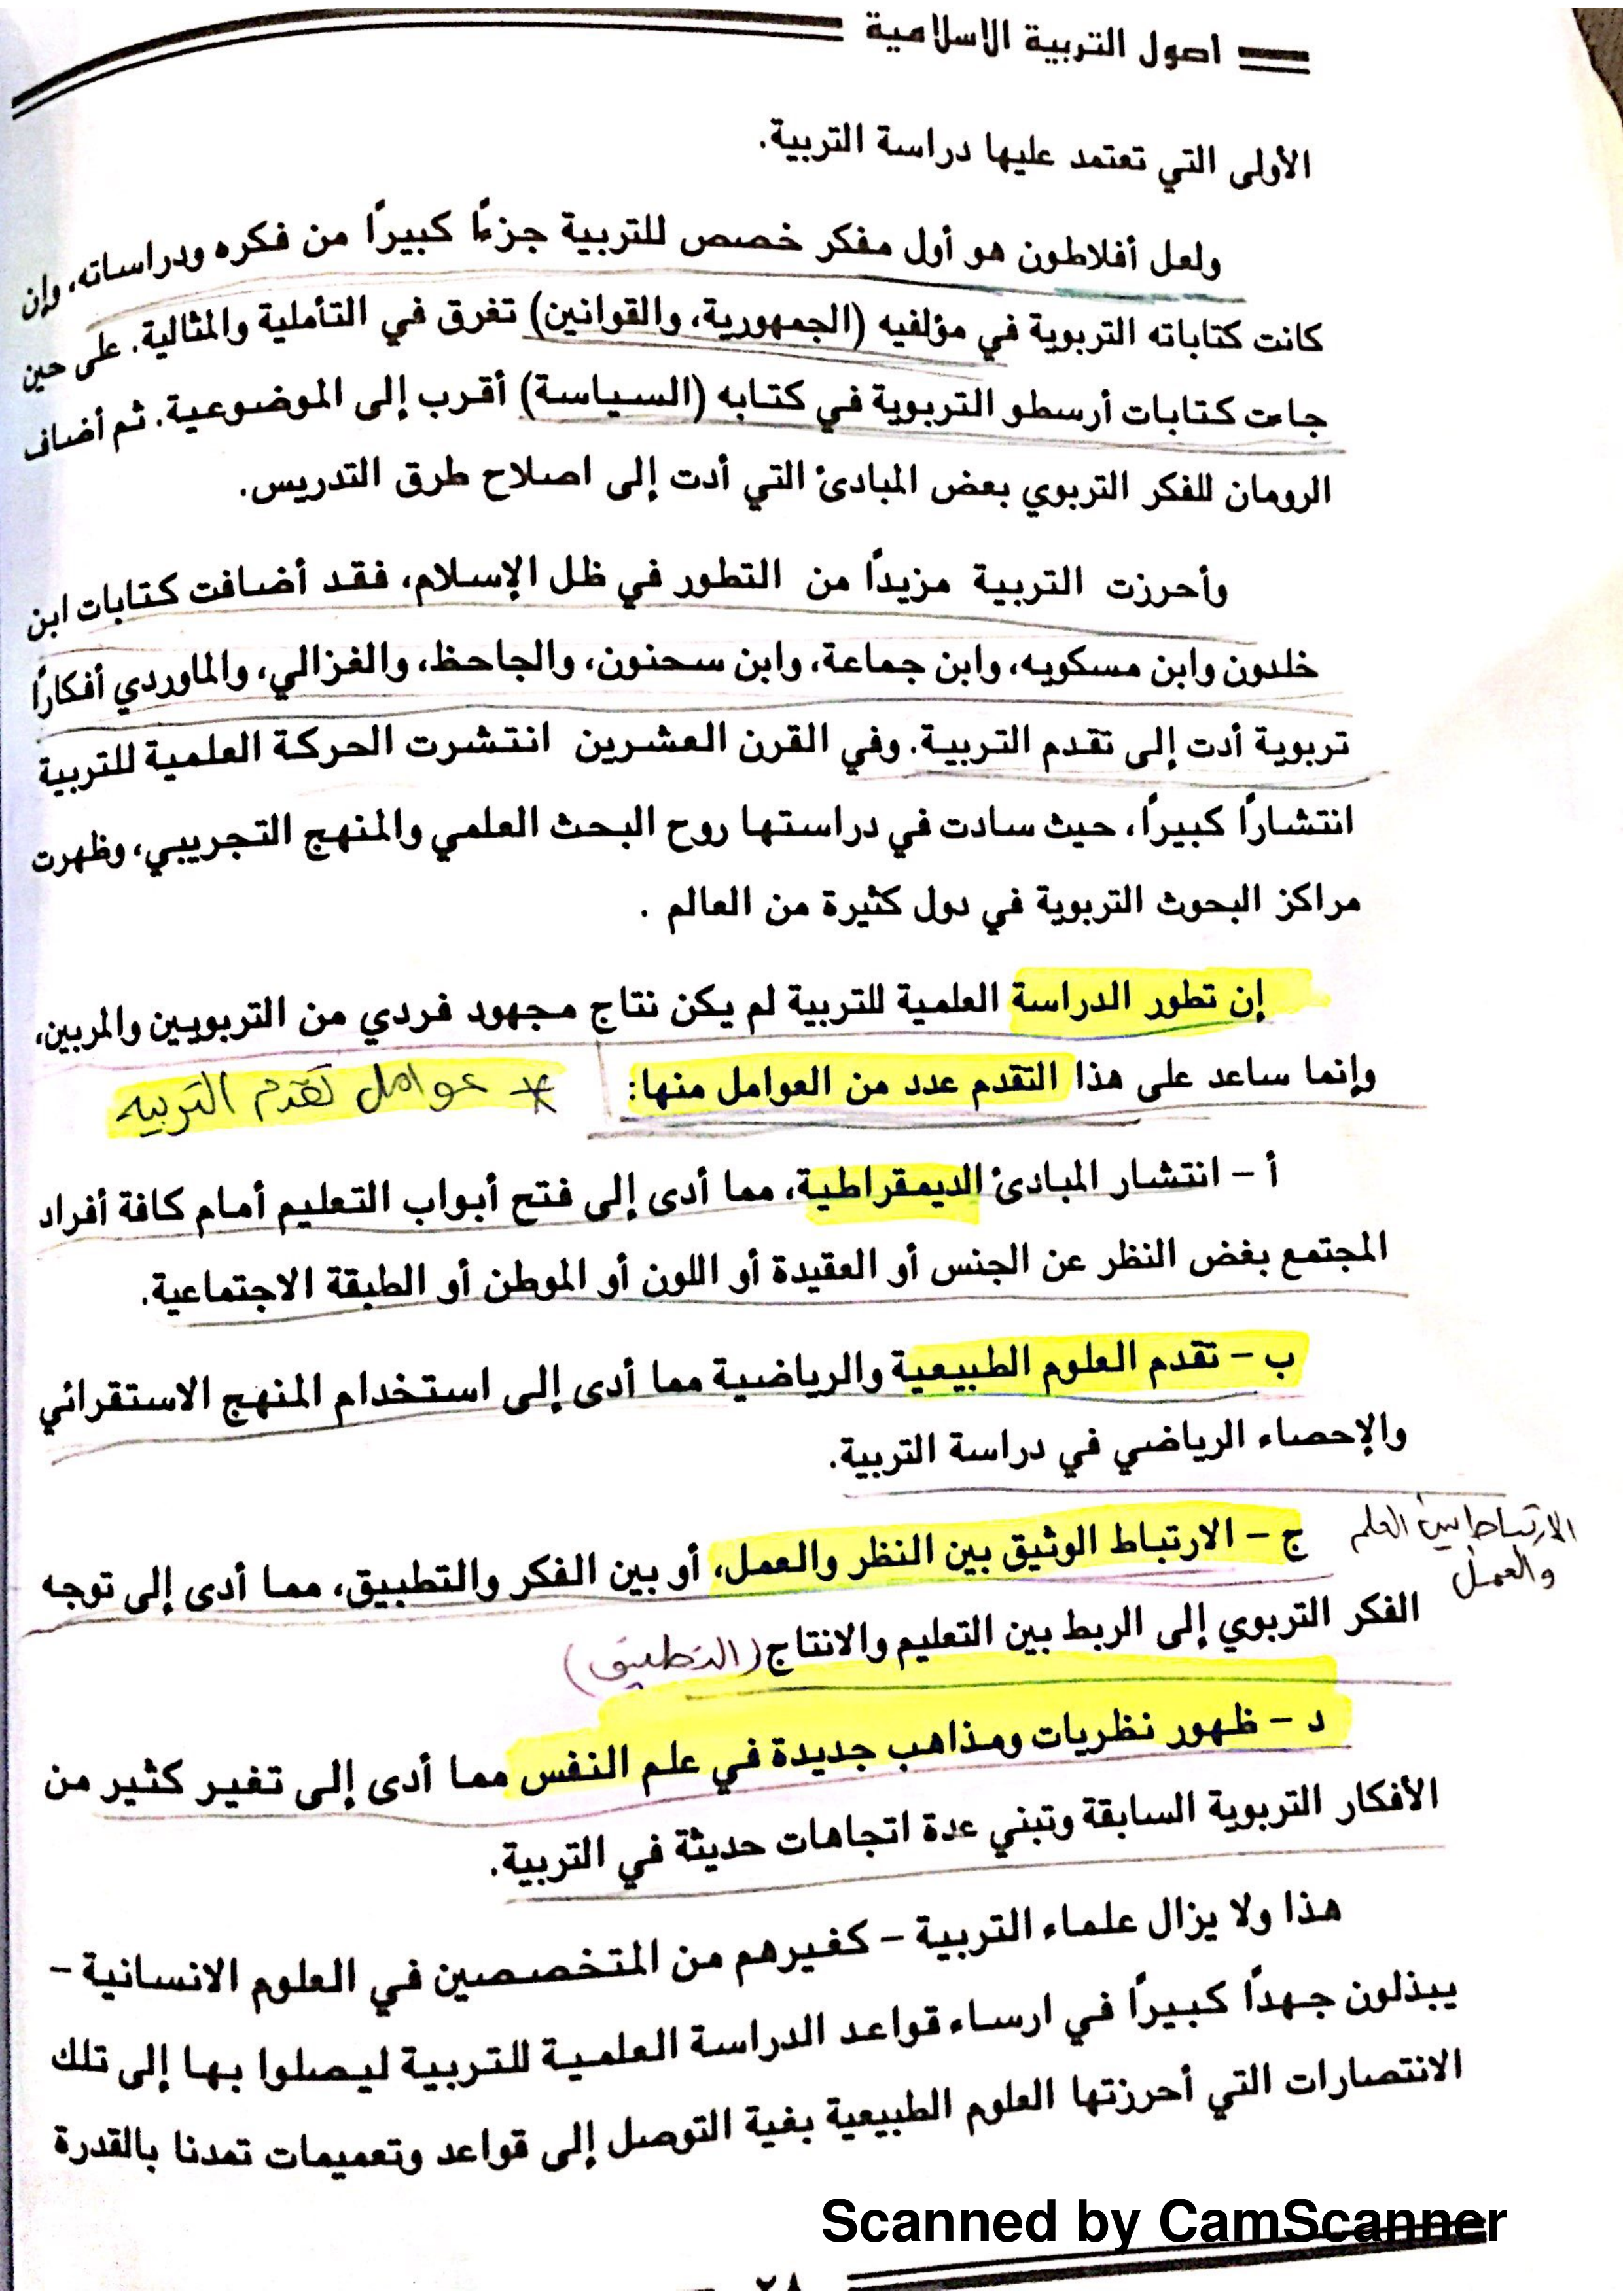 اصول التربية الاسلامية
الأولى التي تعتمد عليها دراسة التربية.
ولعل أفلاطون هو أول مفكر خصص للتربية جزءًا كبيرًا من فكره ودراساته، وإن
كانت كتاباته التربوية في مؤلفيه (الجمهورية، والقوانين) تغرق في التأملية والمثالية. على حين
جاءت كتابات أرسطو التربوية في كتابه (السياسة) أقرب إلى الموضوعية. ثم أضاف
الرومان للفكر التربوي بعض المبادئ التي أدت إلى اصلاح طرق التدريس.
وأحرزت التربية مزيدًا من التطور في ظل الإسلام، فقد أضافت كتابات ابن
خلدون وابن مسكويه، وابن جماعة، وابن سحنون، والجاحظ، والغزالي، والماوردي أفكارًا
تربوية أدت إلى تقدم التربية. وفي القرن العشرين انتشرت الحركة العلمية للتربية
انتشارًا كبيرًا، حيث سادت في دراستها روح البحث العلمي والمنهج التجريبي، وظهرت
مراكز البحوث التربوية في دول كثيرة من العالم .
إن تطور الدراسة العلمية للتربية لم يكن نتاج مجهود فردي من التربويين والمربين،
وإنما ساعد على هذا التقدم عدد من العوامل منها: * عوامل تقدم التربيه
أ - انتشار المبادئ الديمقراطية، مما أدى إلى فتح أبواب التعليم أمام كافة أفراد
المجتمع بغض النظر عن الجنس أو العقيدة أو اللون أو الموطن أو الطبقة الاجتماعية.
ب - تقدم العلوم الطبيعية والرياضية مما أدى إلى استخدام المنهج الاستقرائي
والإحصاء الرياضي في دراسة التربية.
الارتباط بين العلم
والعمل
ج - الارتباط الوثيق بين النظر والعمل، أو بين الفكر والتطبيق، مما أدى إلى توجه
الفكر التربوي إلى الربط بين التعليم والانتاج (التطبيق)
د - ظهور نظريات ومذاهب جديدة في علم النفس مما أدى إلى تغير كثير من
الأفكار التربوية السابقة وتبني عدة اتجاهات حديثة في التربية.
هذا ولا يزال علماء التربية - كغيرهم من المتخصصين في العلوم الانسانية -
يبذلون جهدًا كبيرًا في ارساء قواعد الدراسة العلمية للتربية ليصلوا بها إلى تلك
الانتصارات التي أحرزتها العلوم الطبيعية بغية التوصل إلى قواعد وتعميمات تمدنا بالقدرة
Scanned by CamScanner
٢٨